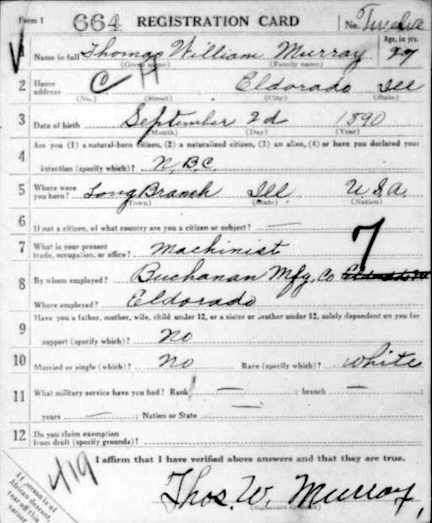 Form 1 664 REGISTRATION CARD No. Twelve
1 Name in full Thomas William Murray 27 Age, in yrs.
(Given name) (Family name)
2 Home address C H Eldorado Ill
(No.) (Street) (City) (State)
3 Date of birth September 2d 1890
(Month) (Day) (Year)
4 Are you (1) a natural-born citizen, (2) a naturalized citizen, (3) an alien, (4) or have you declared your
intention (specify which)? N.B.C.
5 Where were you born? Long Branch Ill U S A
(Town) (State) (Nation)
6 If not a citizen, of what country are you a citizen or subject? —
7 What is your present trade, occupation, or office? Machinist 7
8 By whom employed? Buchanan Mfg. Co
Where employed? Eldorado
9 Have you a father, mother, wife, child under 12, or a sister or brother under 12, solely dependent on you for
support (specify which)? No
10 Married or single (which)? No Race (specify which)? White
11 What military service have you had? Rank — ; branch —
years — ; Nation or State —
12 Do you claim exemption from draft (specify grounds)?
419 I affirm that I have verified above answers and that they are true.
Thos. W. Murray,
If person is of
African descent,
tear off this
corner